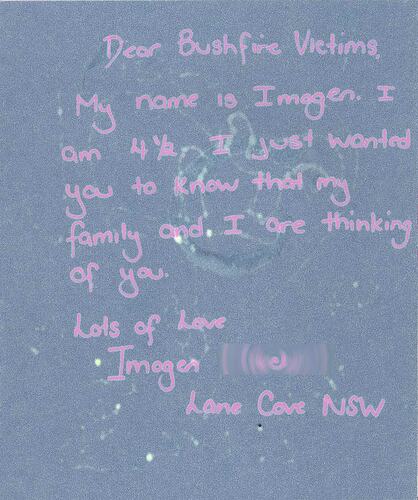 Dear Bushfire Victims,
My name is Imogen. I
am 4 1/2 I just wanted
you to know that my
family and I are thinking
of you.
Lots of Love
Imogen
Lane Cove NSW